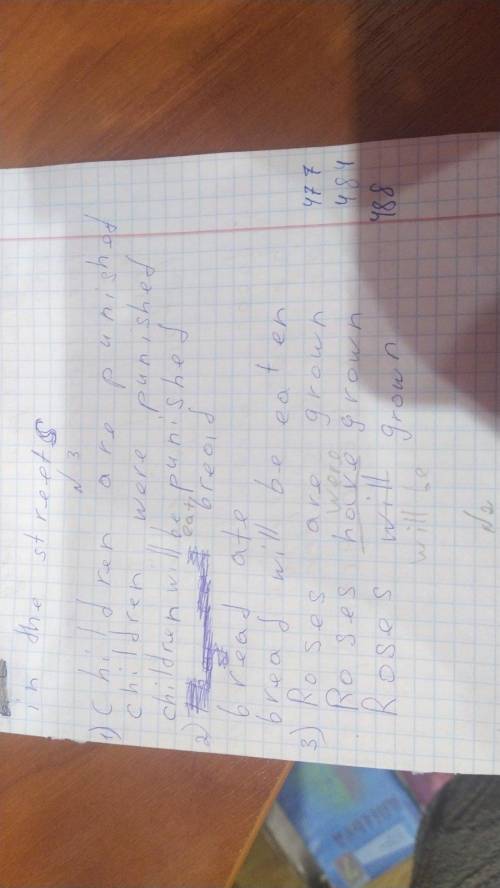 in the streets
№3
1) Children are punished
children were punished
children will be punished
2) eat bread
bread ate
bread will be eaten
3) Roses are grown 477
were
Roses have grown 484
Roses will grown 488
will be
№2